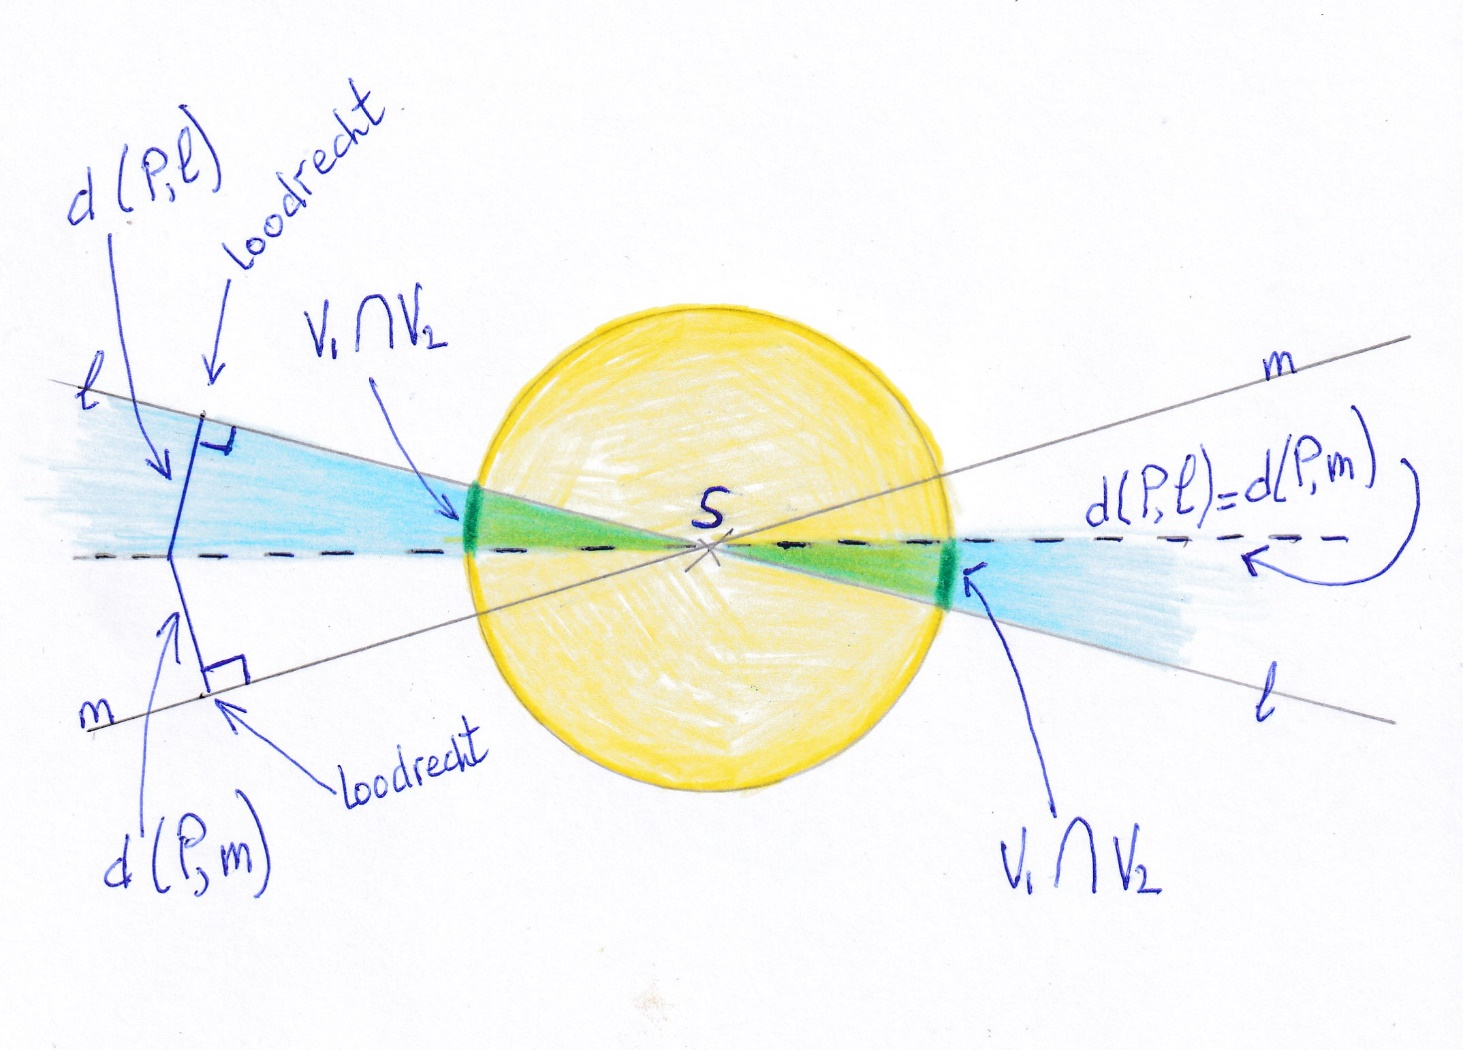 d(P,l)
loodrecht
V₁∩V₂
l
m
S
d(P,l)=d(P,m)
m
l
loodrecht
d(P,m)
V₁∩V₂